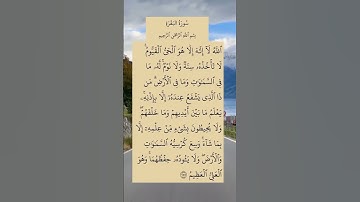 سُورَةُ البَقَرَةِ
بِسْمِ اللَّهِ الرَّحْمَٰنِ الرَّحِيمِ
ٱللَّهُ لَآ إِلَٰهَ إِلَّا هُوَ ٱلْحَىُّ ٱلْقَيُّومُ
لَا تَأْخُذُهُۥ سِنَةٌ وَلَا نَوْمٌ لَّهُۥ مَا
فِى ٱلسَّمَٰوَٰتِ وَمَا فِى ٱلْأَرْضِ مَن
ذَا ٱلَّذِى يَشْفَعُ عِندَهُۥٓ إِلَّا بِإِذْنِهِۦ
يَعْلَمُ مَا بَيْنَ أَيْدِيهِمْ وَمَا خَلْفَهُمْ
وَلَا يُحِيطُونَ بِشَىْءٍ مِّنْ عِلْمِهِۦٓ إِلَّا
بِمَا شَآءَ وَسِعَ كُرْسِيُّهُ ٱلسَّمَٰوَٰتِ
وَٱلْأَرْضَ وَلَا يَـُٔودُهُۥ حِفْظُهُمَا وَهُوَ
ٱلْعَلِىُّ ٱلْعَظِيمُ